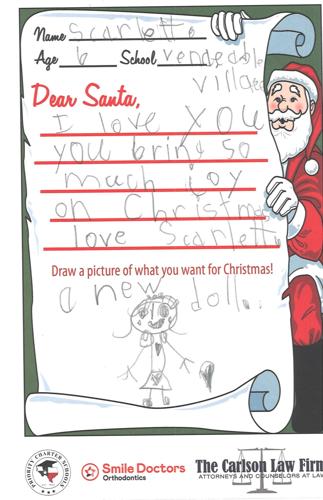 Name Scarlett
Age 6 School
village
Dear Santa,
I love you
you bring so
much joy
on Christmas
love Scarlett
Draw a picture of what you want for Christmas!
a new doll..
PRIORITY CHARTER SCHOOLS
Smile Doctors
Orthodontics
The Carlson Law Firm
ATTORNEYS AND COUNSELORS AT LAW